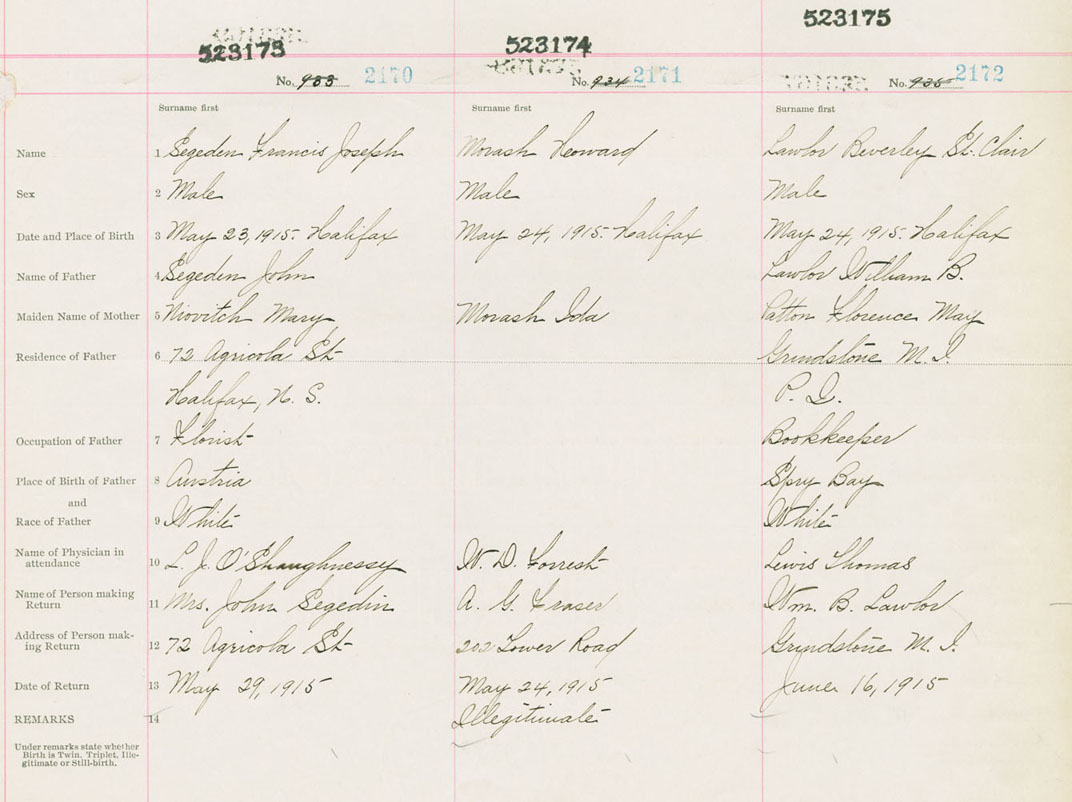 523175
523173 523174
No. 933 2170 No. 934 2171 No. 935 2172
Surname first Surname first Surname first
Name 1 Segeden Francis Joseph Morash Howard Lawlor Beverley St. Clair
Sex 2 Male Male Male
Date and Place of Birth 3 May 23, 1915. Halifax May 24, 1915. Halifax May 24, 1915. Halifax
Name of Father 4 Segeden John Lawlor William B.
Maiden Name of Mother 5 Niovitch Mary Morash Ida Catton Florence May
Residence of Father 6 72 Agricola St Grindstone M. I.
Halifax, N. S. P. I.
Occupation of Father 7 Florist Bookkeeper
Place of Birth of Father 8 Austria Spry Bay
and
Race of Father 9 White White
Name of Physician in
attendance 10 L. J. O'Shaughnessy W. D. Forrest Lewis Thomas
Name of Person making
Return 11 Mrs. John Segedin A. G. Fraser Wm. B. Lawlor
Address of Person mak-
ing Return 12 72 Agricola St 202 Tower Road Grindstone M. I.
Date of Return 13 May 29, 1915 May 24, 1915 June 16, 1915
REMARKS 14 Illegitimate
Under remarks state whether
Birth is Twin, Triplet, Ille-
gitimate or Still-birth.